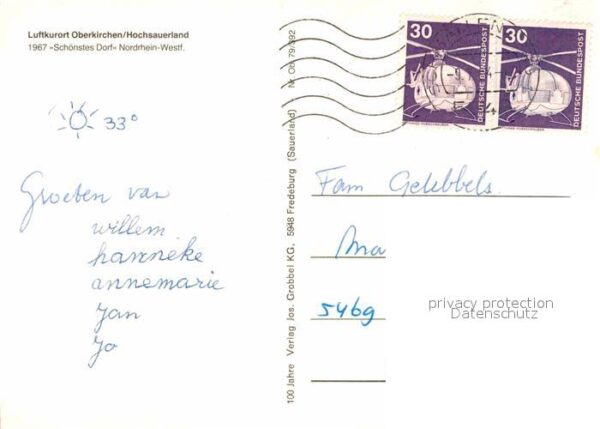 Luftkurort Oberkirchen/Hochsauerland
1967 »Schönstes Dorf« Nordrhein-Westf.
33°
Groeten van
willem
hanneke
annemarie
Jan
Jo
100 Jahre Verlag Jos. Grobbel KG, 5948 Fredeburg (Sauerland) Nr. Ob 79/392
30
DEUTSCHE BUNDESPOST
30
DEUTSCHE BUNDESPOST
Fam Gelebbels.
Ma
546g
privacy protection
Datenschutz